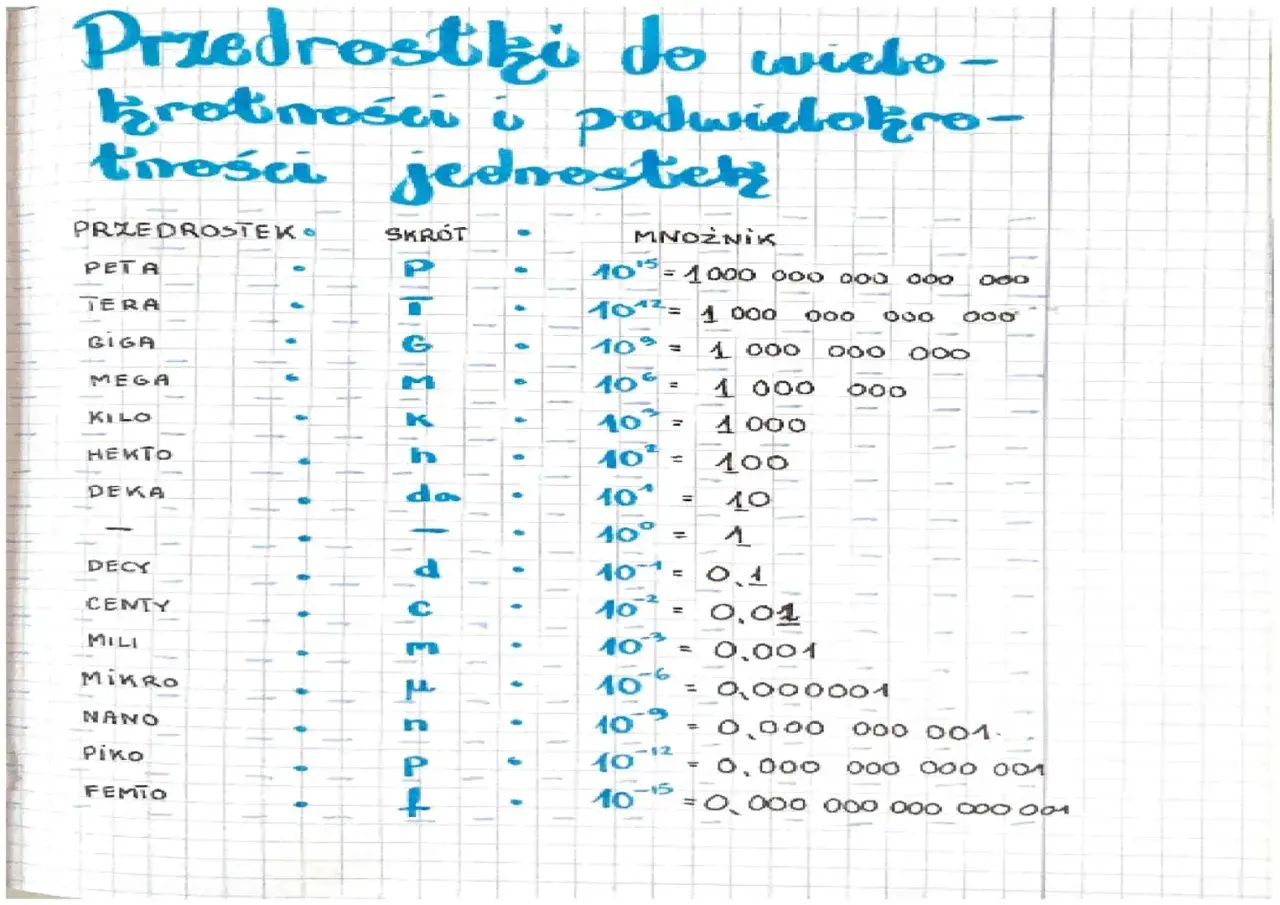 Przedrostki do wielo-
krotności i podwielokro-
tności jednostek
PRZEDROSTEK • SKRÓT • MNOŻNIK
PETA • P • 10¹⁵ = 1 000 000 000 000 000
TERA • T • 10¹² = 1 000 000 000 000
GIGA • G • 10⁹ = 1 000 000 000
MEGA • M • 10⁶ = 1 000 000
KILO • k • 10³ = 1 000
HEKTO • h • 10² = 100
DEKA • da • 10¹ = 10
— • — • 10⁰ = 1
DECY • d • 10⁻¹ = 0,1
CENTY • c • 10⁻² = 0,01
MILI • m • 10⁻³ = 0,001
MIKRO • μ • 10⁻⁶ = 0,000001
NANO • n • 10⁻⁹ = 0,000 000 001
PIKO • p • 10⁻¹² = 0,000 000 000 001
FEMTO • f • 10⁻¹⁵ = 0,000 000 000 000 001